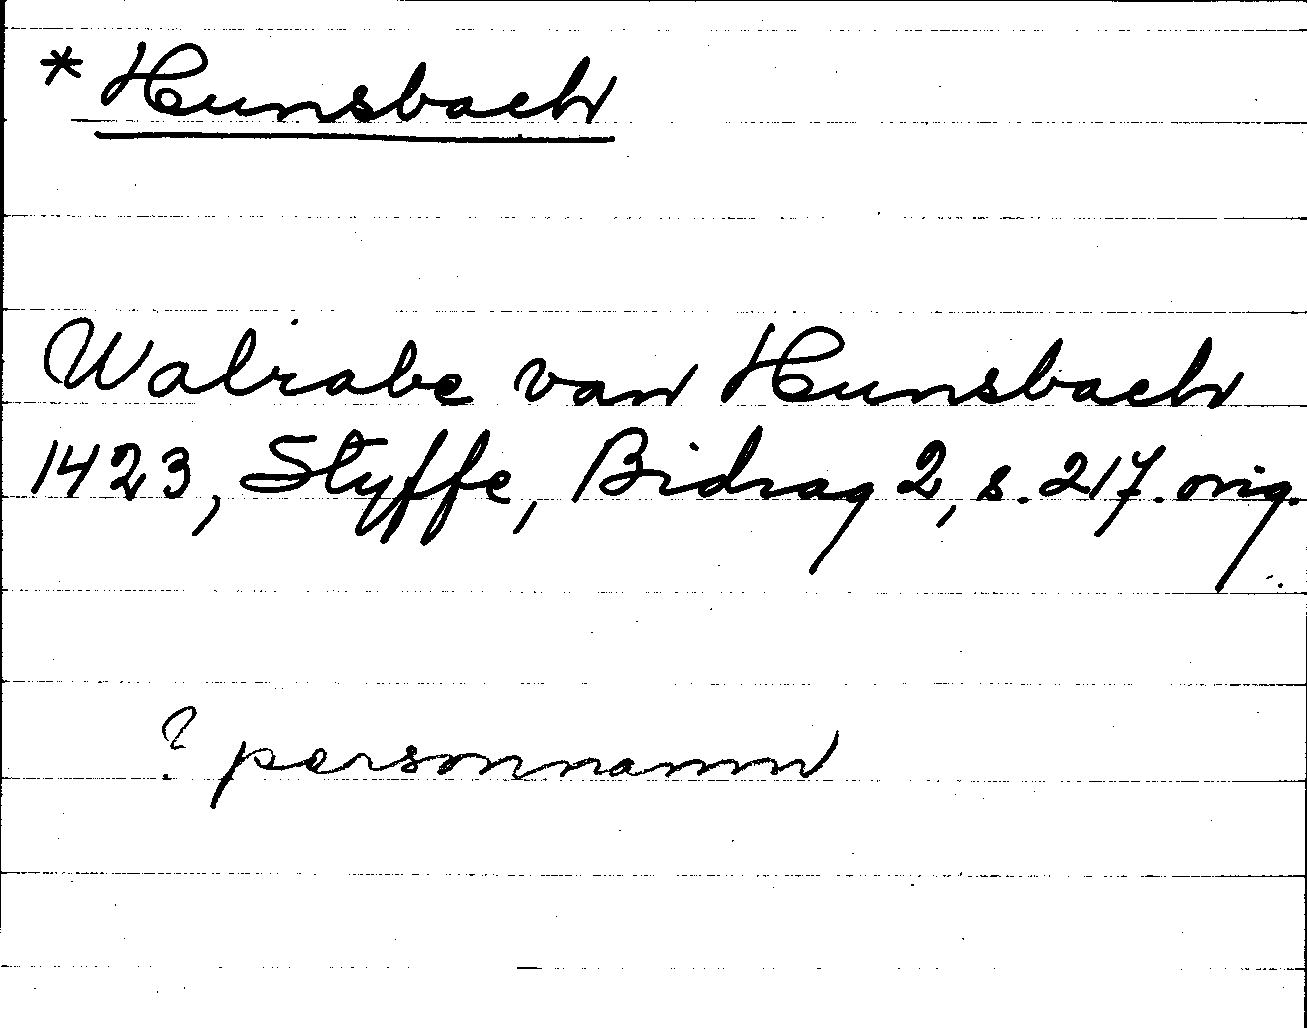 * Hunsbach
Walrabe van Hunsbach
1423, Styffe, Bidrag 2, s. 217. orig.
? personnamn